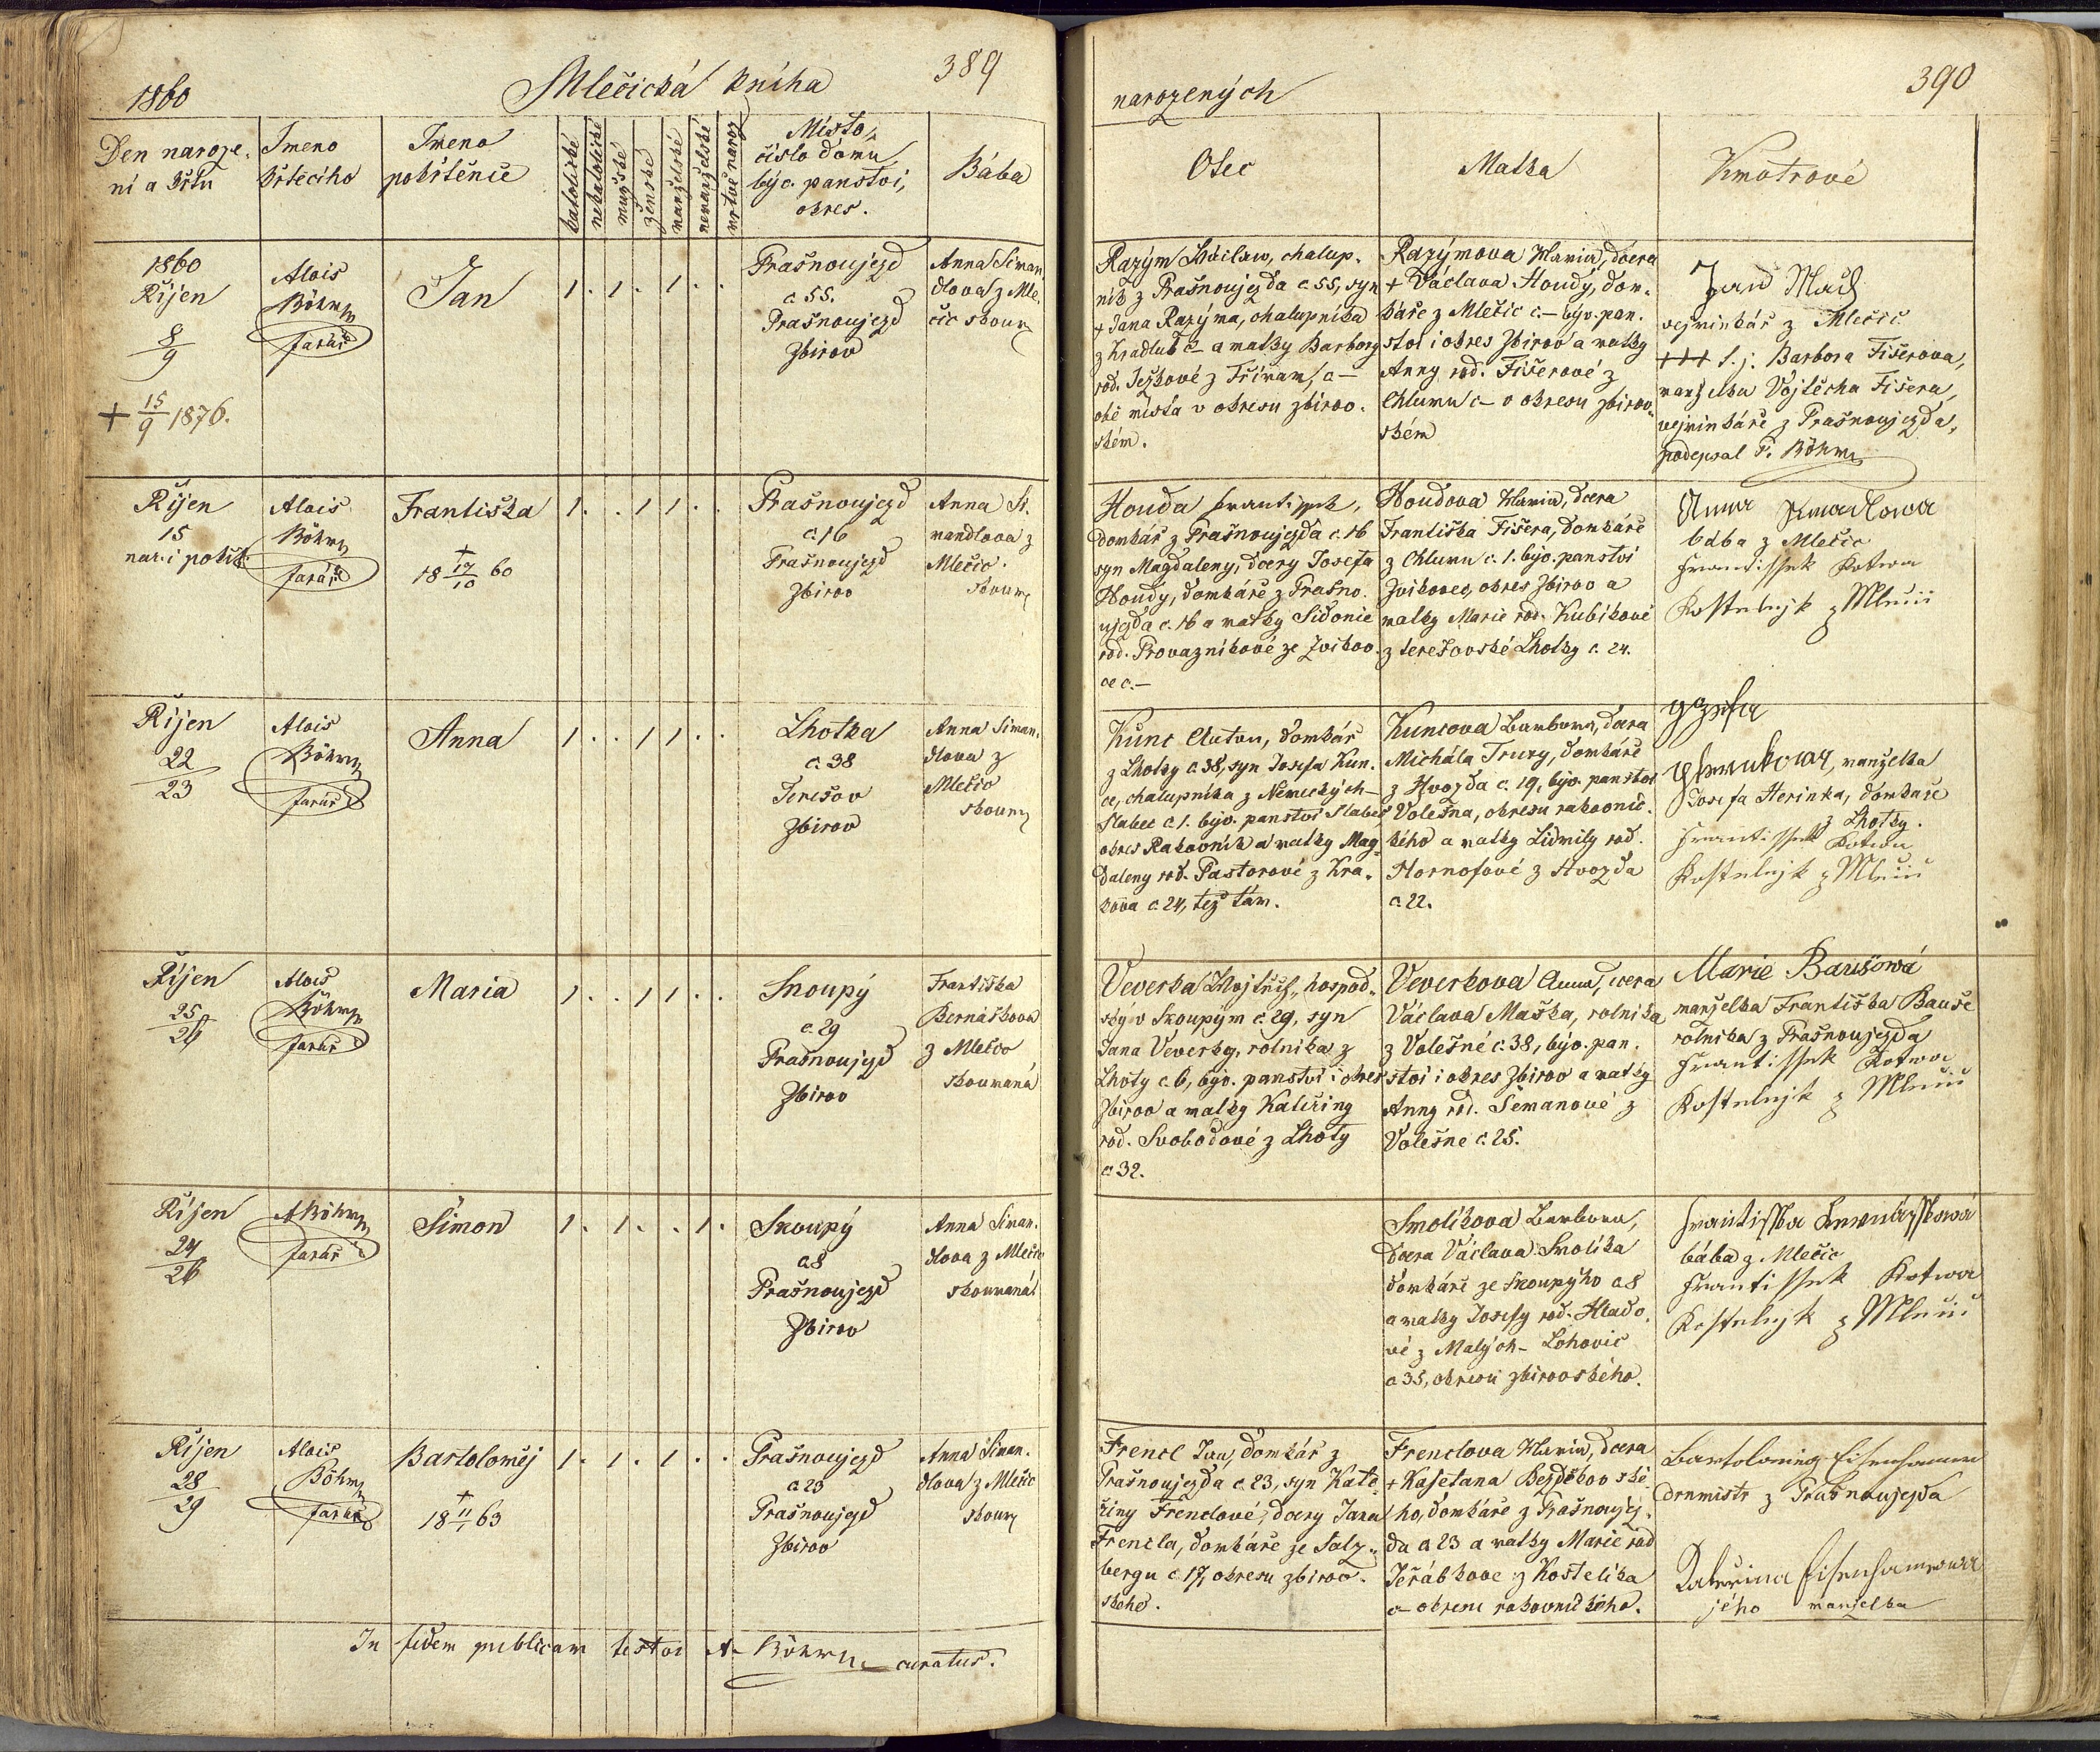 1860
Mlečická kniha
389
Den naroze-
ní a křtu
Jmeno
křtícího
Jmeno
pokřtěnce
katolické
nekatolické
mužské
ženské
manželské
nemanželské
mrtvě naroz
Místo,
číslo domu
býv. panství,
okres.
Bába
1860
Říjen
8
9
+ 15/9 1876.
Alois
Böhm
farář
Jan
1 . 1 . 1 . .
Prašnoujezd
č 55.
Prašnoujezd
Zbirov
Anna Siman
dlova z Mle-
čic skoum
Říjen
15
nar. i pokřt.
Alois
Böhm
farář
Františka
+
18 17/10 60
1 . . 1 1 . .
Prašnoujezd
č. 16
Prašnoujezd
Zbirov
Anna Si-
mandlova z
Mlečic
skoum
Říjen
22
23
Alois
Böhm
farář
Anna
1 . . 1 1 . .
Lhotka
č. 38
Terešov
Zbirov
Anna Siman-
dlova z
Mlečic
skoum
Říjen
25
26
Alois
Böhm
farář
Maria
1 . . 1 1 . .
Skoupý
č. 29
Prašnoujezd
Zbirov
Františka
Bernášková
z Mlečic
skoumaná
Říjen
24
26
A Böhm
farář
Šimon
1 . 1 . . 1 .
Skoupý
č 8
Prašnoujezd
Zbirov
Anna Siman-
dlova z Mlečic
skoumaná
Říjen
28
29
Alois
Böhm
farář
Bartoloměj
+
18 11/1 63
1 . 1 . 1 . .
Prašnoujezd
č 23
Prašnoujezd
Zbirov
Anna Siman-
dlova z Mlečic
skoum
In fidem publicam testor A. Böhm curatus.
narozených
390
Otec
Matka
Kmotrové
Razým Václaw, chalup-
ník z Prašnoujezda č 55, syn
+ Jana Razýma, chalupníka
z Hradlub č – a matky Barbory
rod. Ježkové z Tříman, č –
obě místa v okresu zbirov-
ském.
Razýmova Maria, dcera
+ Václava Houdy, dom-
káře z Mlečic č – býv. pan-
ství i okres Zbirov a matky
Anny rod. Fišerové z
Chlumu č – v okresu zbirov-
ském
Jan Mach
vejminkář z Mlečic
+++ t. j. Barbora Fišerova,
manželka Vojtěcha Fišera,
vejminkáře z Prašnoujezda,
podepsal P. Böhm
Houda Frantissek,
domkář z Prašnoujezda č. 16
syn Magdaleny, dcery Josefa
Houdy, domkáře z Prašno-
ujezda č. 16 a matky Sidonie
rod. Provazníkové ze Zvíkov-
ce č. –
Houdova Maria, dcera
Františka Fišera, domkáře
z Chlumu č. 1. býv. panství
Zvíkovec, okres Zbirov a
matky Marie rod. Kubíkové
z terešovské Lhotky č. 24.
Anna
bába z Mlečic
Frantissek Kotwa
Kostelnjk z Mlečic
Kunc Anton, domkář
z Lhotky č. 38, syn Josefa Kun-
ce, chalupníka z Německých-
Slabec č 1. býv. panství Slabec
okres Rakovník a matky Mag-
daleny rod. Pastorové z Kra-
kova č. 24, též tam.
Kuncova Barbora, dcera
Michala Truxy, domkáře
z Hvozda č. 19, býv. panství
Volešna, okresu rakovnic-
kého a matky Lidmily rod.
Hornofové z Hvozda
č 22.
Jozefa
manželka
Josefa Herinka, domkáře
z Lhotky.
Frantissek Kotwa
Kostelnjk z Mlečic
Veverka Wojtěch, hospod-
ský v Skoupým č. 29, syn
Jana Veverky, rolníka z
Lhoty č. 6, býv. panství i okres
Zbirov a matky Kateřiny
rod. Svobodové z Lhoty
č 32.
Veverkova Anna, dcera
Václava Maška, rolníka
z Volešné č. 38, býv. pan-
ství i okres Zbirov a matky
Anny rod. Šemanové z
Volešné č. 25.
Marie Baušowá
manželka Františka Bauše
rolníka z Prašnoujezda
Frantissek Kotwa
Kostelnjk z Mlečic
Smolíkova Barbora,
dcera Václava Smolíka
domkáře ze Skoupýho č 8
a matky Josefy rod. Hlado-
vé z Malých-Lohovic
č 35, okresu zbirovského.
Frantisska Bernásskowá
bába z Mlečic
Frantissek Kotwa
Kostelnjk z Mlečic
Frencl Jan, domkář z
Prašnoujezda č 23, syn Kate-
řiny Frenclové, dcery Jana
Frencla, domkáře ze Salz-
bergu č. 17, okresu zbirov-
ského.
Frenclova Maria, dcera
+ Kajetana Bezděkovské-
ho, domkáře z Prašnoujez-
da č 23 a matky Marie rod
Jeřábkove z Kostelíka
č – okresu rakovnického.
z Prašnoujezda
Kateřina
jeho manželka